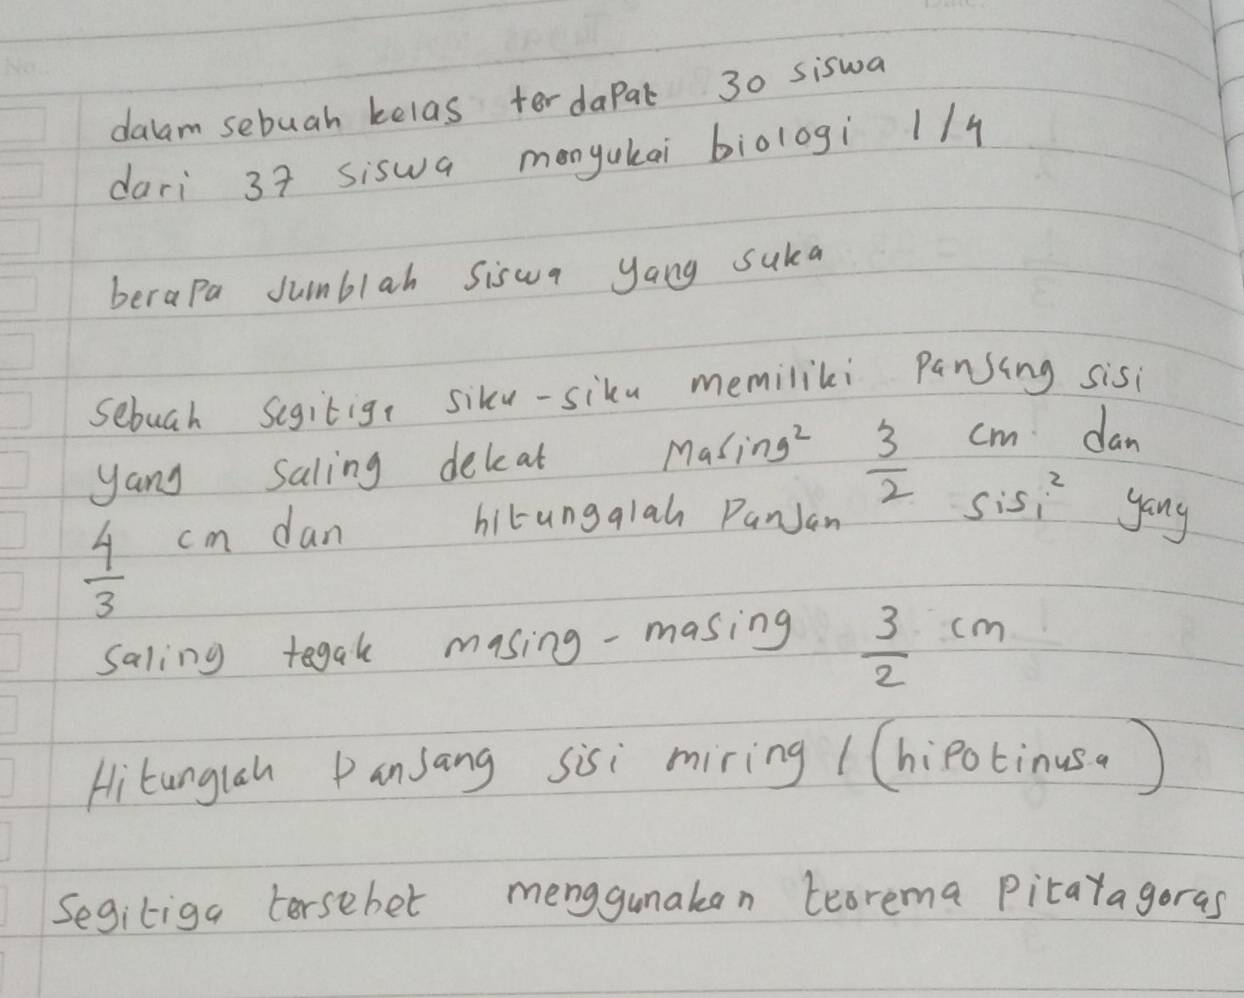 dalam sebuah kelas terdapat 30 siswa
dari 37 siswa menyukai biologi 1/4
berapa Jumblah siswa yang suka
Sebuah segitiga siku-siku memiliki Panjang sisi
yang saling dekat Masing² 3/2 cm dan
4/3 cm dan hitunganlah Panjan sisi² yang
saling tegak masing-masing 3/2 cm
Hitunglah Panjang sisi miring / (hipotinusa)
Segitiga tersebet menggunakan teorema Pitatagoras